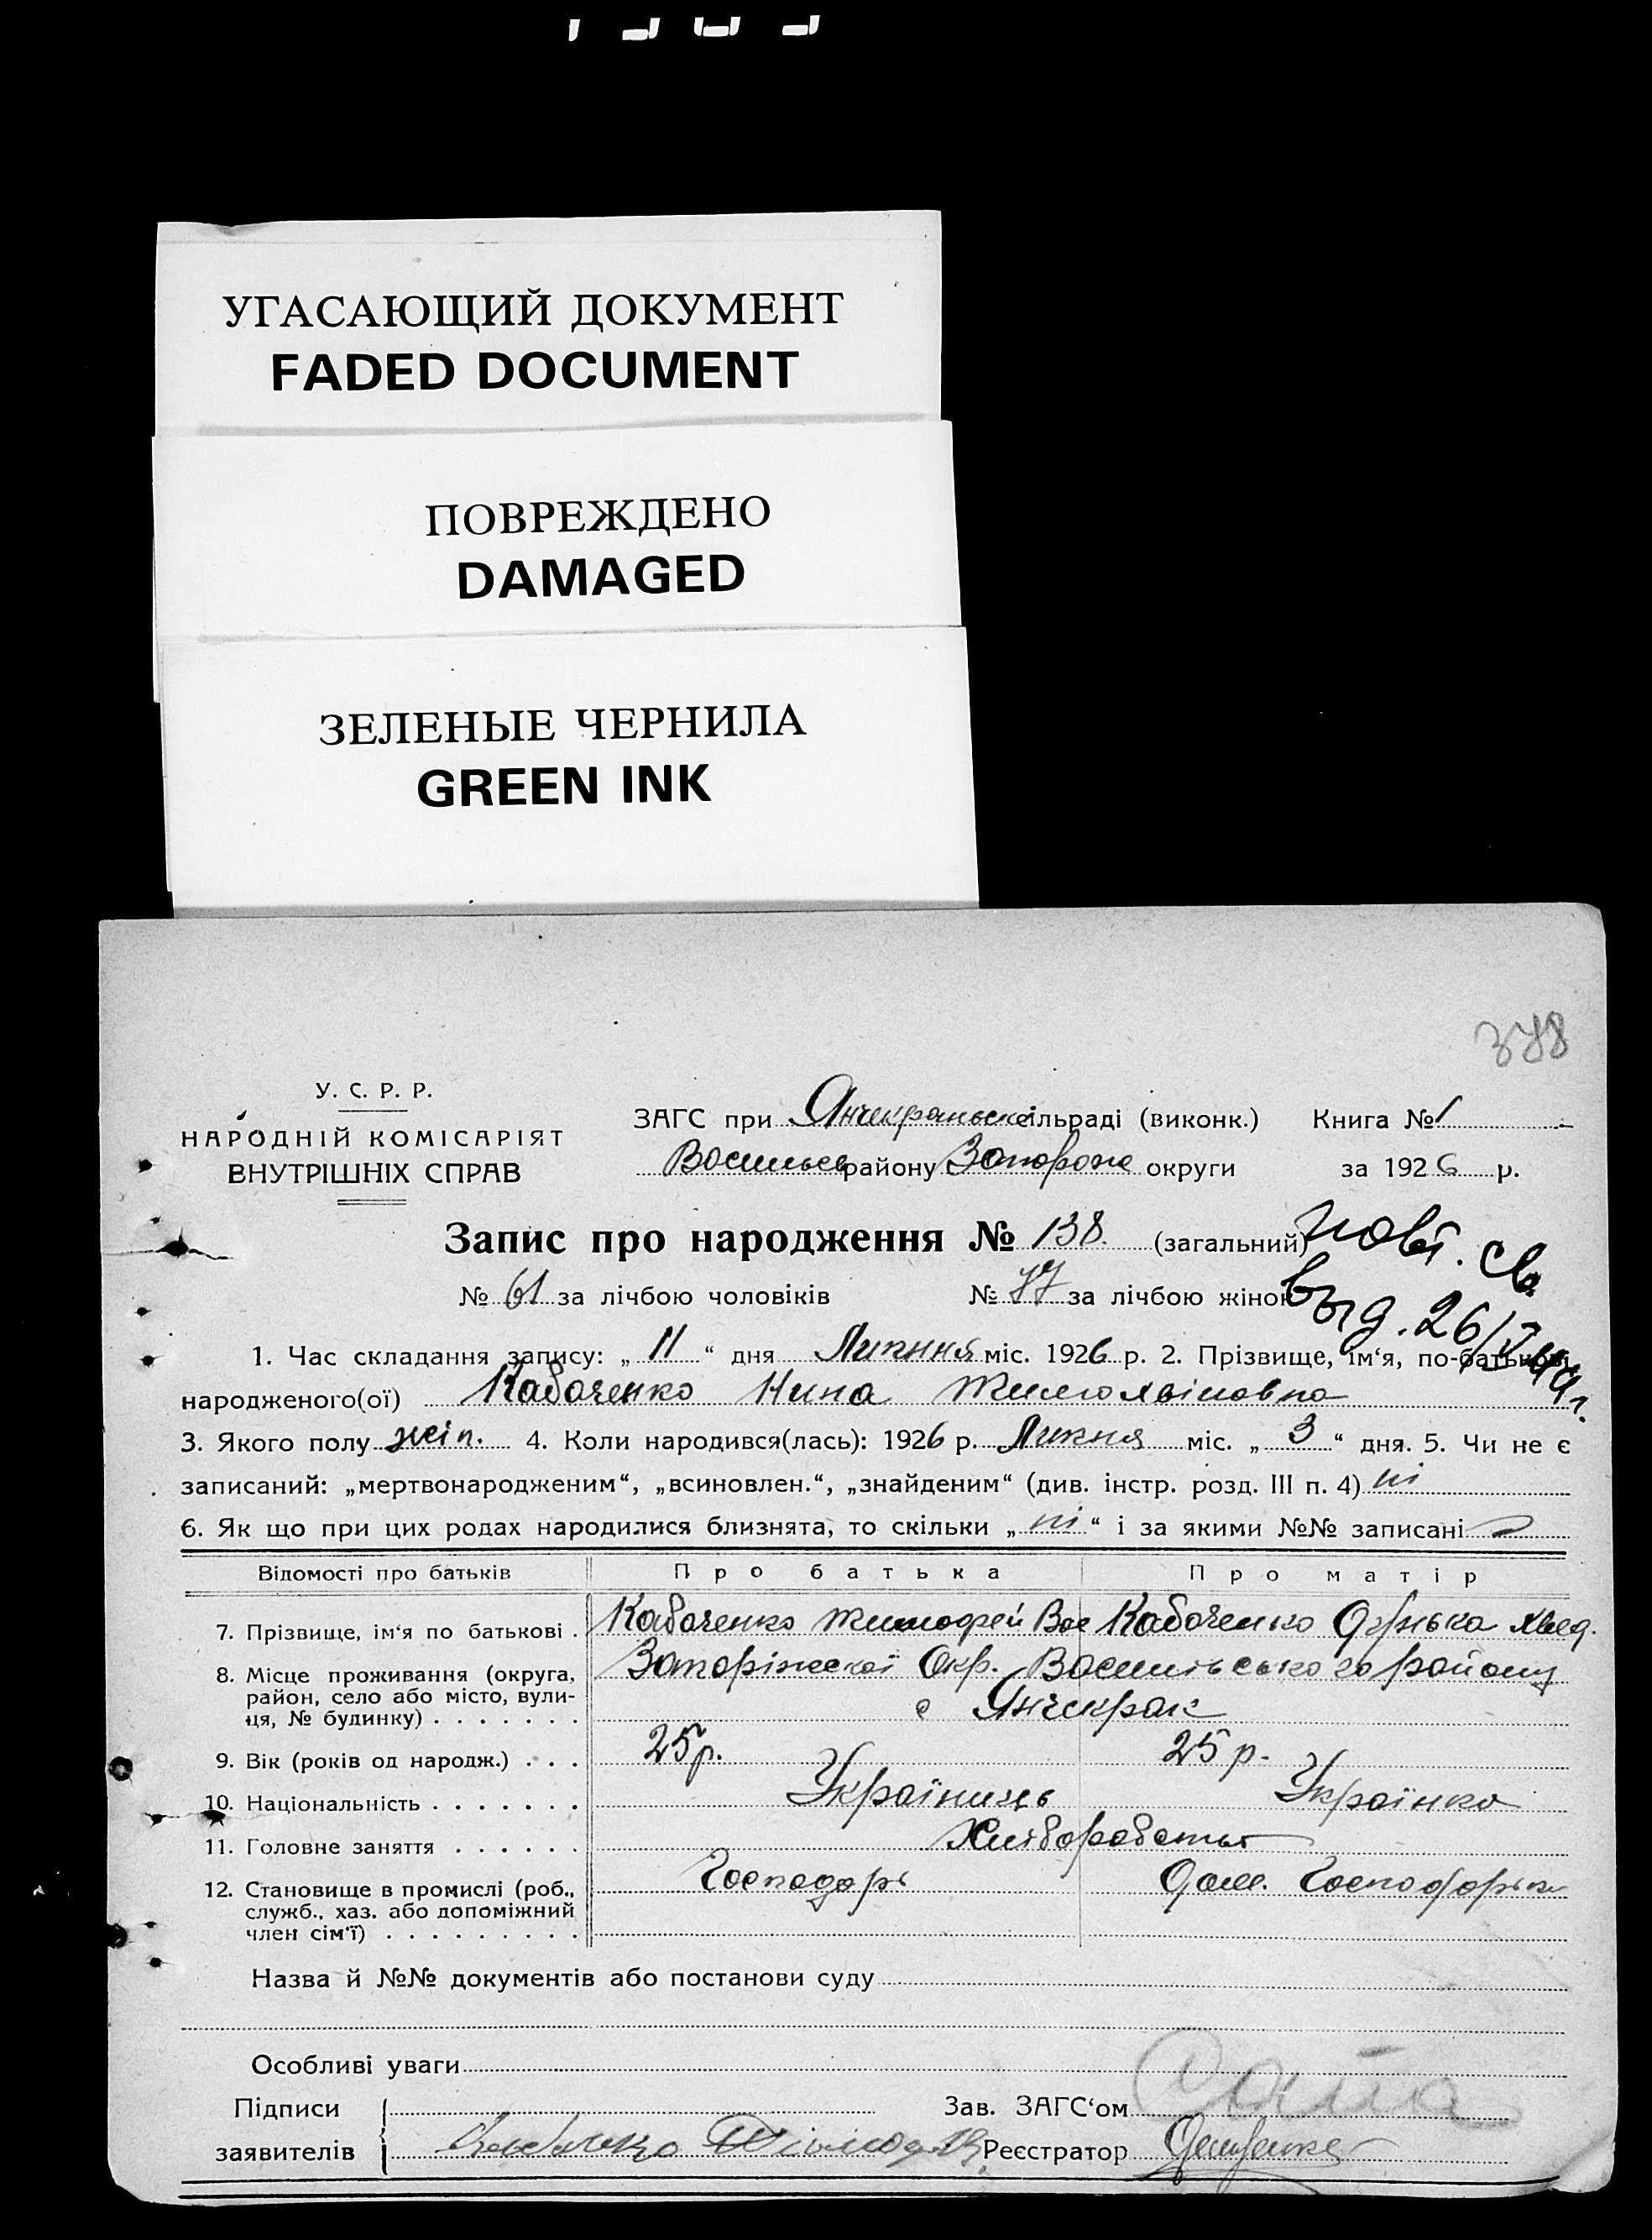 УГАСАЮЩИЙ ДОКУМЕНТ
FADED DOCUMENT
ПОВРЕЖДЕНО
DAMAGED
ЗЕЛЕНЫЕ ЧЕРНИЛА
GREEN INK
378
У. С. Р. Р.
НАРОДНІЙ КОМІСАРІЯТ
ВНУТРІШНІХ СПРАВ
ЗАГС при Янчекранській сільраді (виконк.) Книга № 1
Васильев району Запорож округи за 1926 р.
Запис про народження № 138. (загальний)
повт. св.
№ 61 за лічбою чоловіків № 77 за лічбою жінок
выд. 26/
1. Час складання запису: „ 11 “ дня Липння міс. 1926 р. 2. Прізвище, ім‘я, по-батькові
народженого(ої) Кабаченко Нина Тимохвіновна
3. Якого полу жін. 4. Коли народився(лась): 1926 р. Липня міс. „ 3 “ дня. 5. Чи не є
записаний: „мертвонародженим“, „всиновлен.“, „знайденим“ (див. інстр. розд. III п. 4) ні
6. Як що при цих родах народилися близнята, то скільки „ ні “ і за якими №№ записані
Відомості про батьків Про батька Про матір
7. Прізвище, ім‘я по батькові . Кабаченко Тимофей Вас Кабаченко Одрька Хвед.
8. Місце проживання (округа, район, село або місто, вулиця, № будинку) . . . . . . . Запоріжської Окр. Васильського району
с Янчекрак
9. Вік (років од народж.) . . . 25 р. 25 р.
10. Національність . . . . . . . Українець Українка
11. Головне заняття . . . . . . Хліборобство
12. Становище в промислі (роб., Господарь Дом. Господарька
служб., хаз. або допоміжний
член сім‘ї) . . . . . . . . .
Назва й №№ документів або постанови суду
Особливі уваги
Підписи Зав. ЗАГС‘ом
заявителів Кабаченко Реєстратор